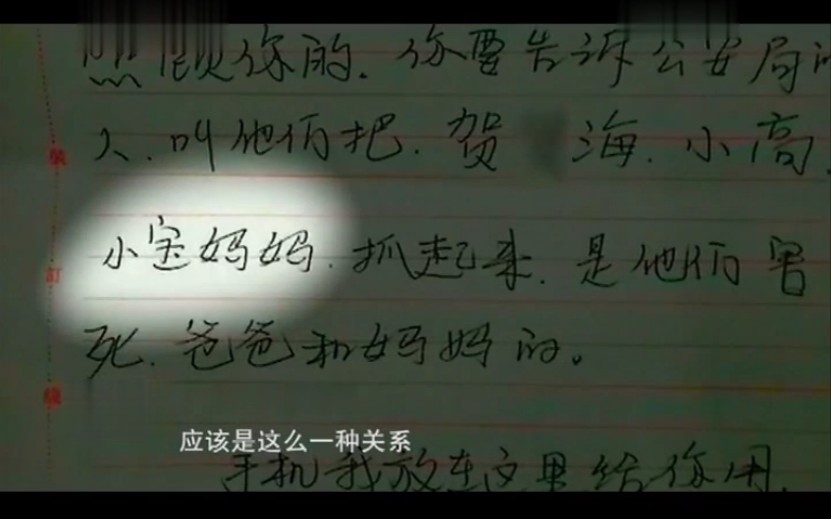 照顾你的.你要告诉公安局
人.叫他们把.贺 海.小高.
小宝妈妈.抓起来.是他们害
死.爸爸和妈妈的。
应该是这么一种关系
手机我放在这里给你用.
装
訂
線